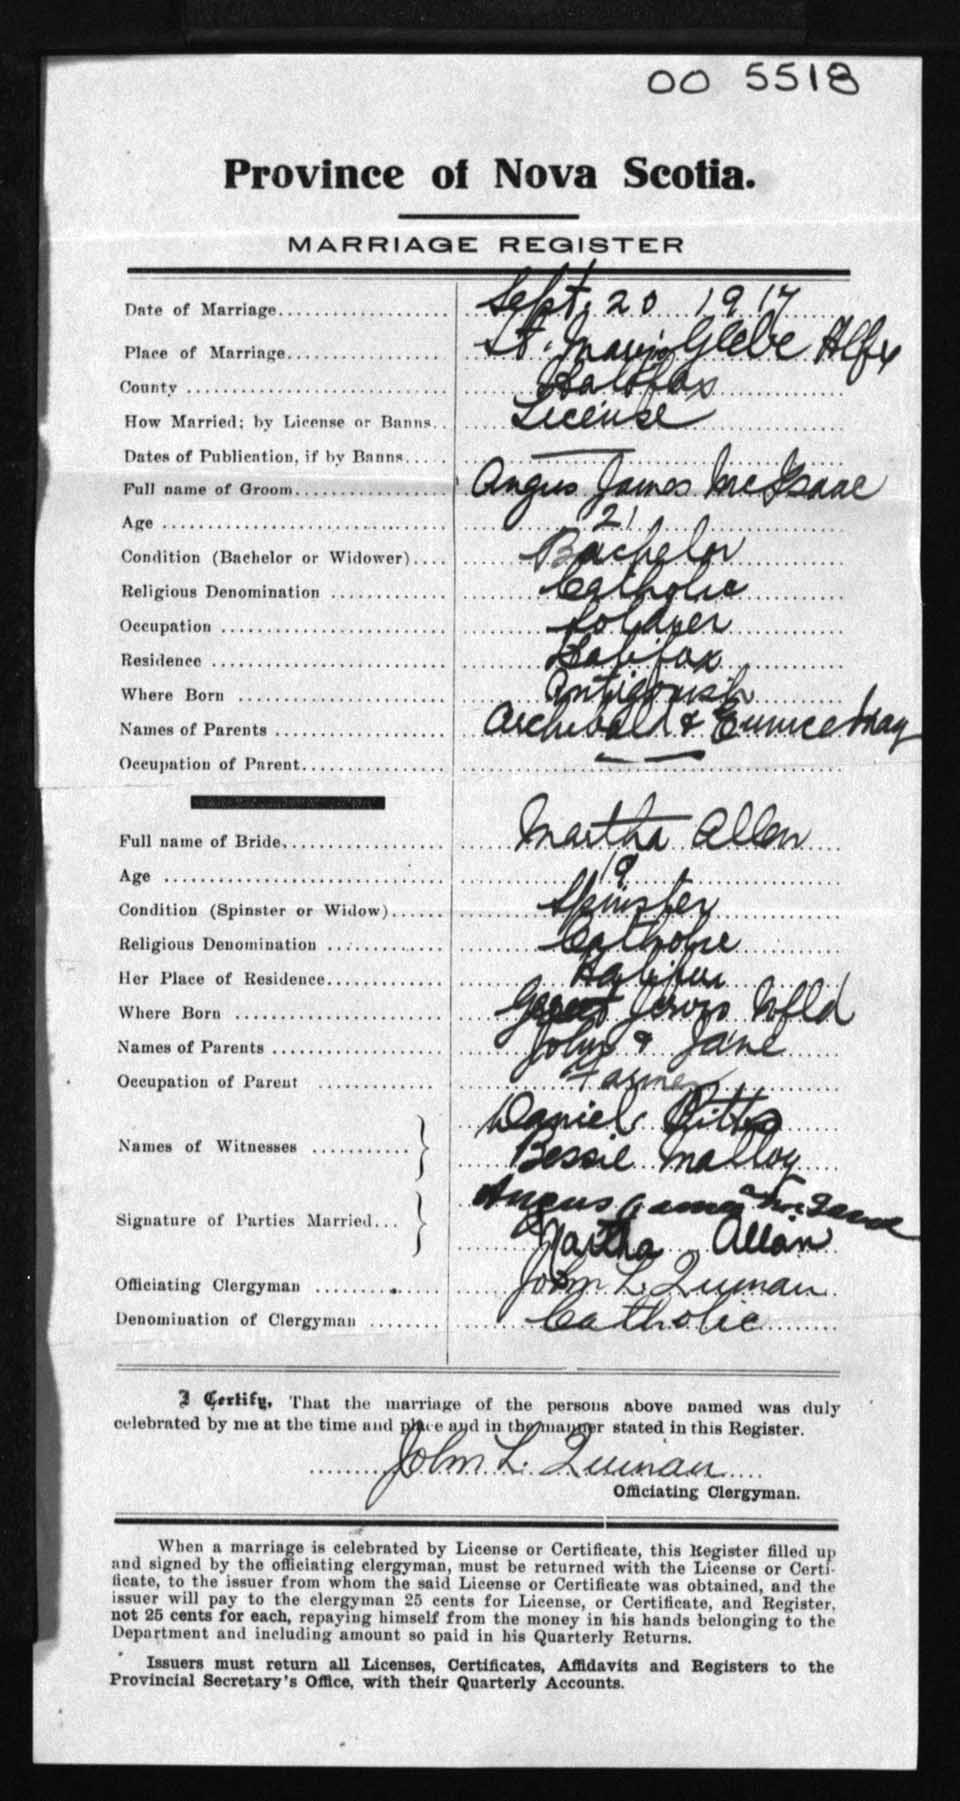 00 5518
Province of Nova Scotia.
MARRIAGE REGISTER
Date of Marriage Sept. 20 1917
Place of Marriage St. Mary's Glebe Hlfx
County Halifax
How Married; by License or Banns License
Dates of Publication, if by Banns —
Full name of Groom Angus James McIsaac
Age 21
Condition (Bachelor or Widower) Bachelor
Religious Denomination Catholic
Occupation Soldier
Residence Halifax
Where Born Antigonish
Names of Parents Archibald & Eunice May
Occupation of Parent — —
Full name of Bride Martha Allen
Age 19
Condition (Spinster or Widow) Spinster
Religious Denomination Catholic
Her Place of Residence Halifax
Where Born Jervis Nfld
Names of Parents John & Jane
Occupation of Parent Farmer
Names of Witnesses Daniel Pitts
Bessie Malloy
Signature of Parties Married Angus James McIsaac
Martha Allan
Officiating Clergyman John L. Quinan
Denomination of Clergyman Catholic
I Certify, That the marriage of the persons above named was duly
celebrated by me at the time and place and in the manner stated in this Register.
John L. Quinan
Officiating Clergyman.
When a marriage is celebrated by License or Certificate, this Register filled up
and signed by the officiating clergyman, must be returned with the License or Certi-
ficate, to the issuer from whom the said License or Certificate was obtained, and the
issuer will pay to the clergyman 25 cents for License, or Certificate, and Register,
not 25 cents for each, repaying himself from the money in his hands belonging to the
Department and including amount so paid in his Quarterly Returns.
Issuers must return all Licenses, Certificates, Affidavits and Registers to the
Provincial Secretary's Office, with their Quarterly Accounts.